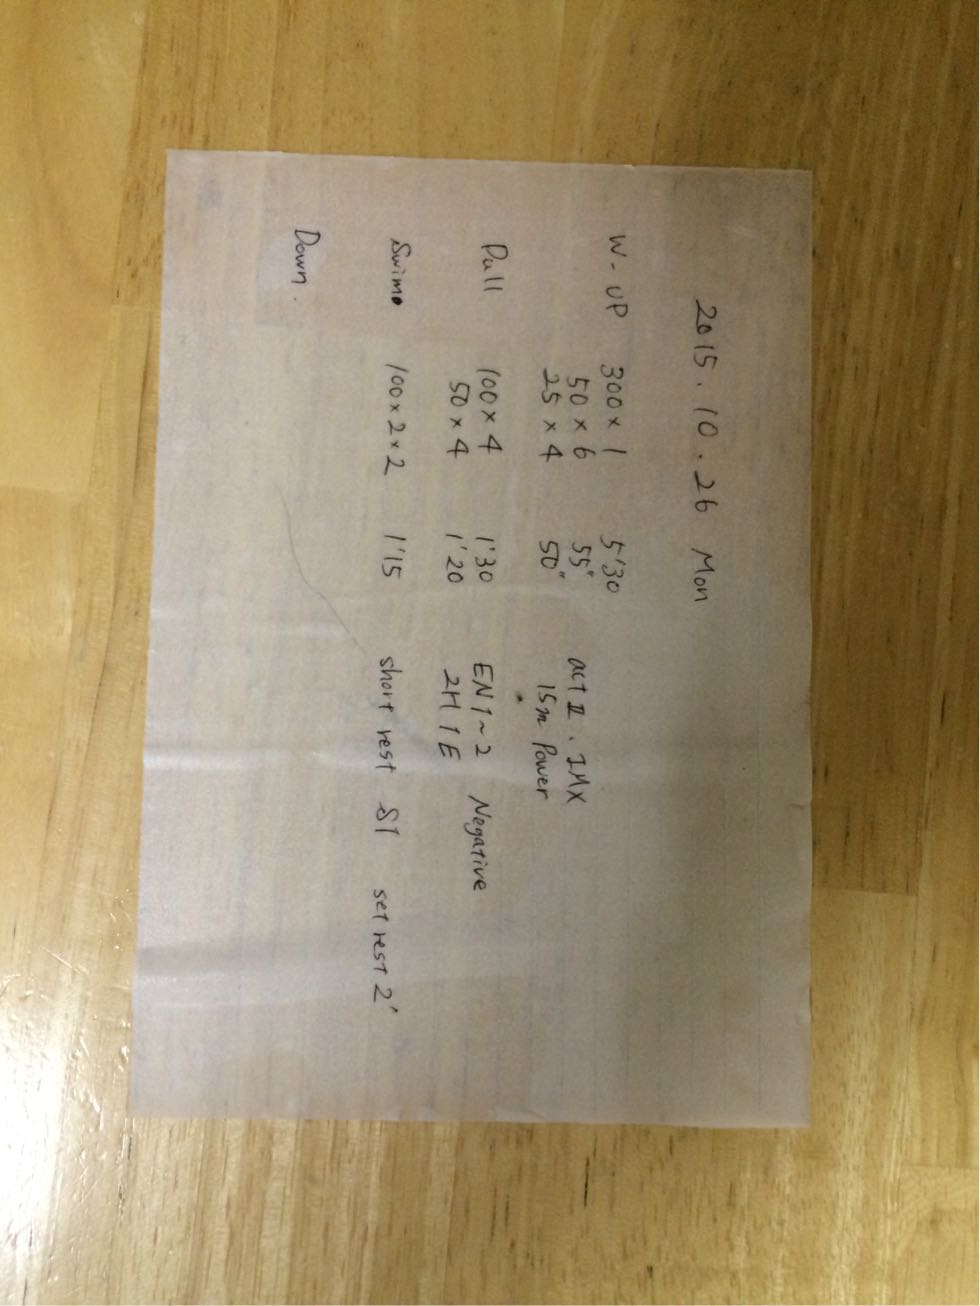 2015.10.26 Mon
W-UP 300×1 5'30
50×6 55" act II. IMX
25×4 50" 15m Power
Pull 100×4 1'30 EN1~2 Negative
50×4 1'20 2H1E
Swim 100×2×2 1'15 short rest S1 set rest 2'
Down.